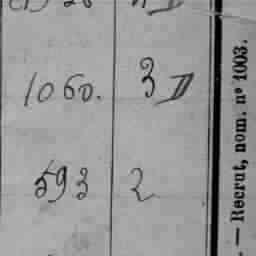 1060. 3 D
593 2
— Recrut, nom. nº 1003.